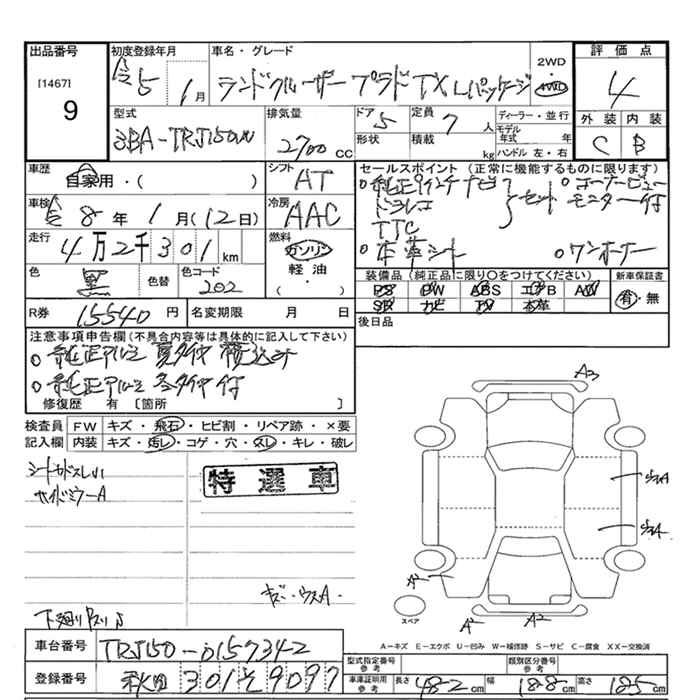 出品番号 初度登録年月 車名・グレード 2WD 評価点
[1467] 令5 1月 ランドクルーザープラド TX Lパッケージ 4WD 4
9
型式 排気量 ドア 定員 ディーラー・並行 外装 内装
3BA-TRJ150W 2700cc 5 7人 モデル年式 年 C B
形状 積載 kg ハンドル 左・右
車歴 シフト セールスポイント(正常に機能するものに限ります)
自家用・( ) AT
純正 ナビ コーナービュー
車検 令8年1月(12日) 冷房 AAC ドラレコ セット モニター付
TTC
走行 燃料 本革シート ワンオーナー
4万2千301km ガソリン
軽油
( )
色 黒 色替 色コード 202
装備品(純正品に限り○をつけてください) 新車保証書
PS PW ABS エアB AW 有・無
SR ナビ TV 本革
R券 15540円 名変期限 月 日 後日品
注意事項申告欄(不具合内容等は具体的に記入して下さい)
純正アルミ 夏タイヤ 積込み
純正アルミ 冬タイヤ付
修復歴 有 〔箇所 〕
検査員 FW キズ・飛石・ヒビ割・リペア跡・×要
記入欄 内装 キズ・汚レ・コゲ・穴・スレ・キレ・破レ
シート スレ
サイドミラーA
特選車
キズ・ウスA
下廻り
A3
A
A
A2
A2
A2
スペア
A－キズ E－エクボ U－凹み W－補修跡 S－サビ C－腐食 XX－交換済
車台番号 TRJ150-0157342
登録番号 秋田 301 そ 9097
型式指定番号 参考 類別区分番号 参考
車庫証明用 参考 長さ 482cm 幅 188cm 高さ 185cm